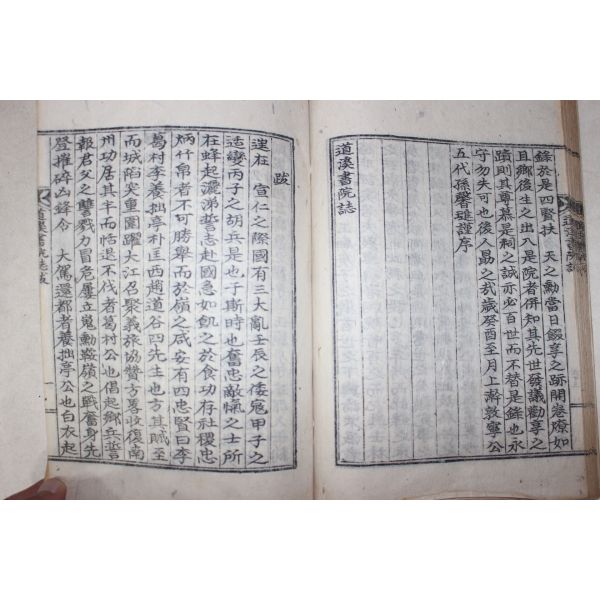 錄於是四賢扶 天之勳當日餟享之跡開卷瞭如
且鄉後生之出入是院者併知其先世發議勸享之
蹟則其尊慕是祠之誠亦必百世而不替是錄也永
守勿失可也後人勗之哉歲癸酉至月上澣敦寧公
五代孫馨璡謹序
道溪書院誌
跋
逮在 宣仁之際國有三大亂壬辰之倭寇甲子之
适變丙子之胡兵是也于斯時也奮忠敵愾之士所
在蜂起灑涕誓志赴國急如飢之於食功存社稷忠
炳竹帛者不可勝舉而於嶺之咸安有四忠賢曰李
葛村李養拙亭朴匡西趙道谷四先生也方其賊至
而城陷突重圍躍大江召聚義旅協贊方畧收復南
州功居其半而恬退不伐者葛村公也倡起鄉兵誓
報君父之讐戮力冒危屢立嵬勳鞍嶺之戰奮身先
登摧碎凶鋒令 大駕還都者養拙亭公也白衣起
道溪書院誌跋
一